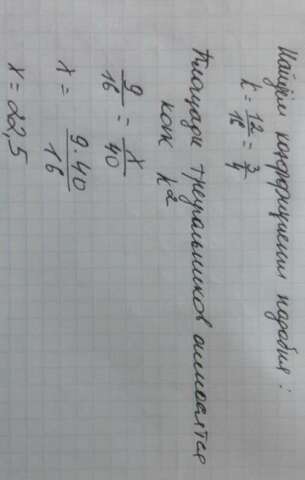 Найдём коэффициент подобия:
k = 12/16 = 3/4
Площади треугольников относятся
как k²
9/16 = x/40
x = 9·40/16
x = 22,5